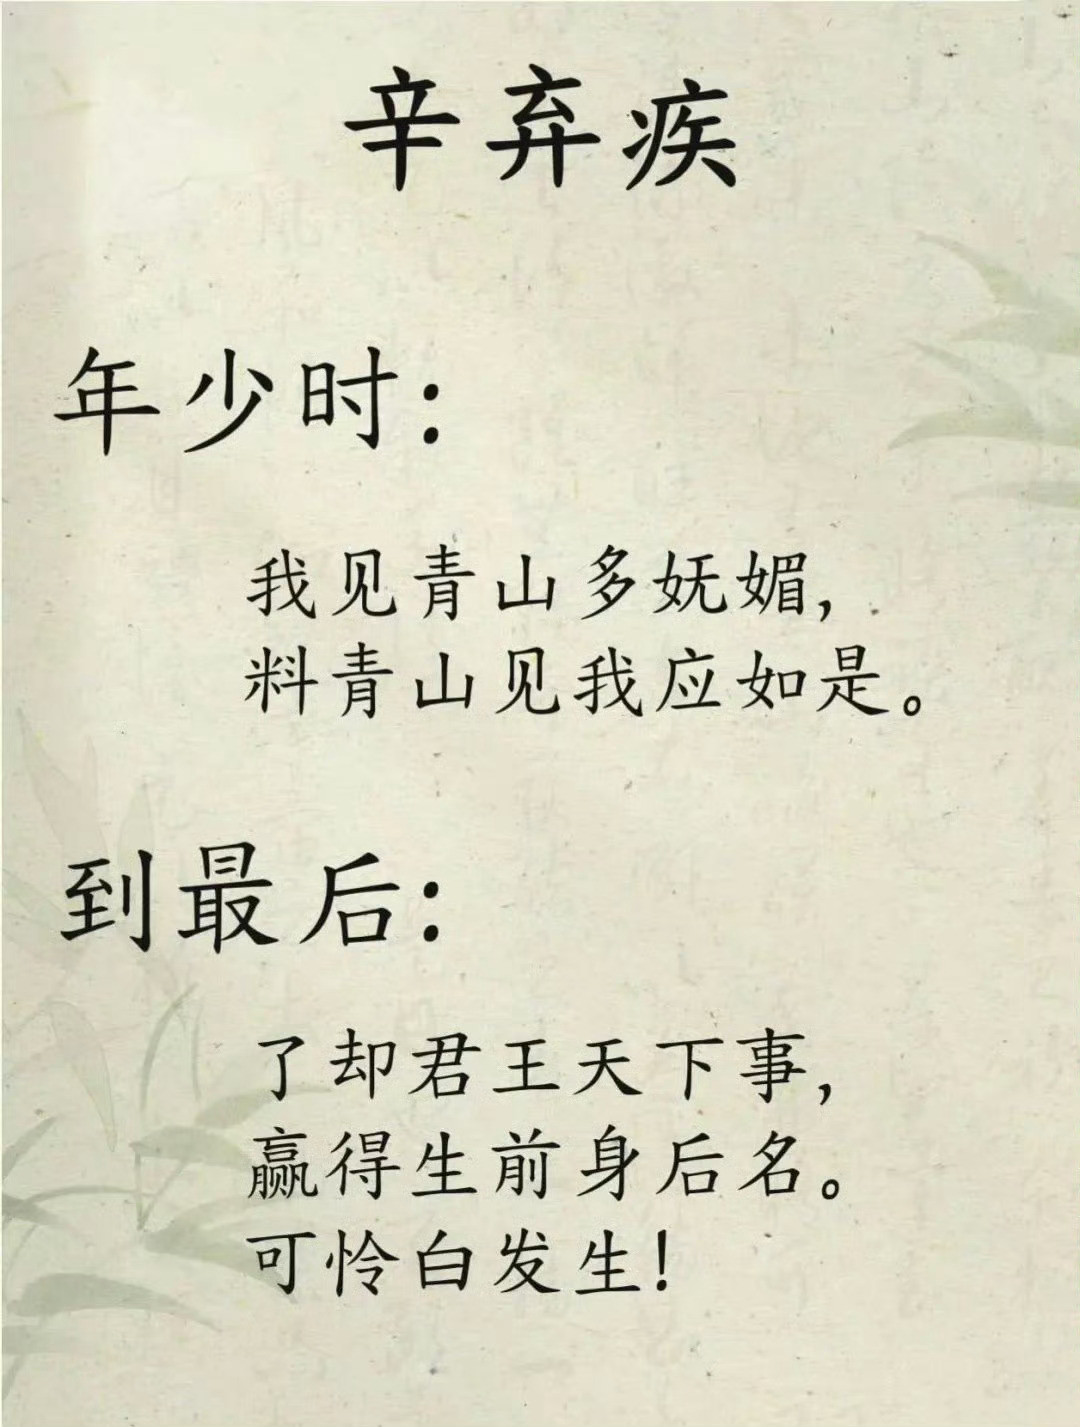 辛弃疾
年少时：
我见青山多妩媚，
料青山见我应如是。
到最后：
了却君王天下事，
赢得生前身后名。
可怜白发生！